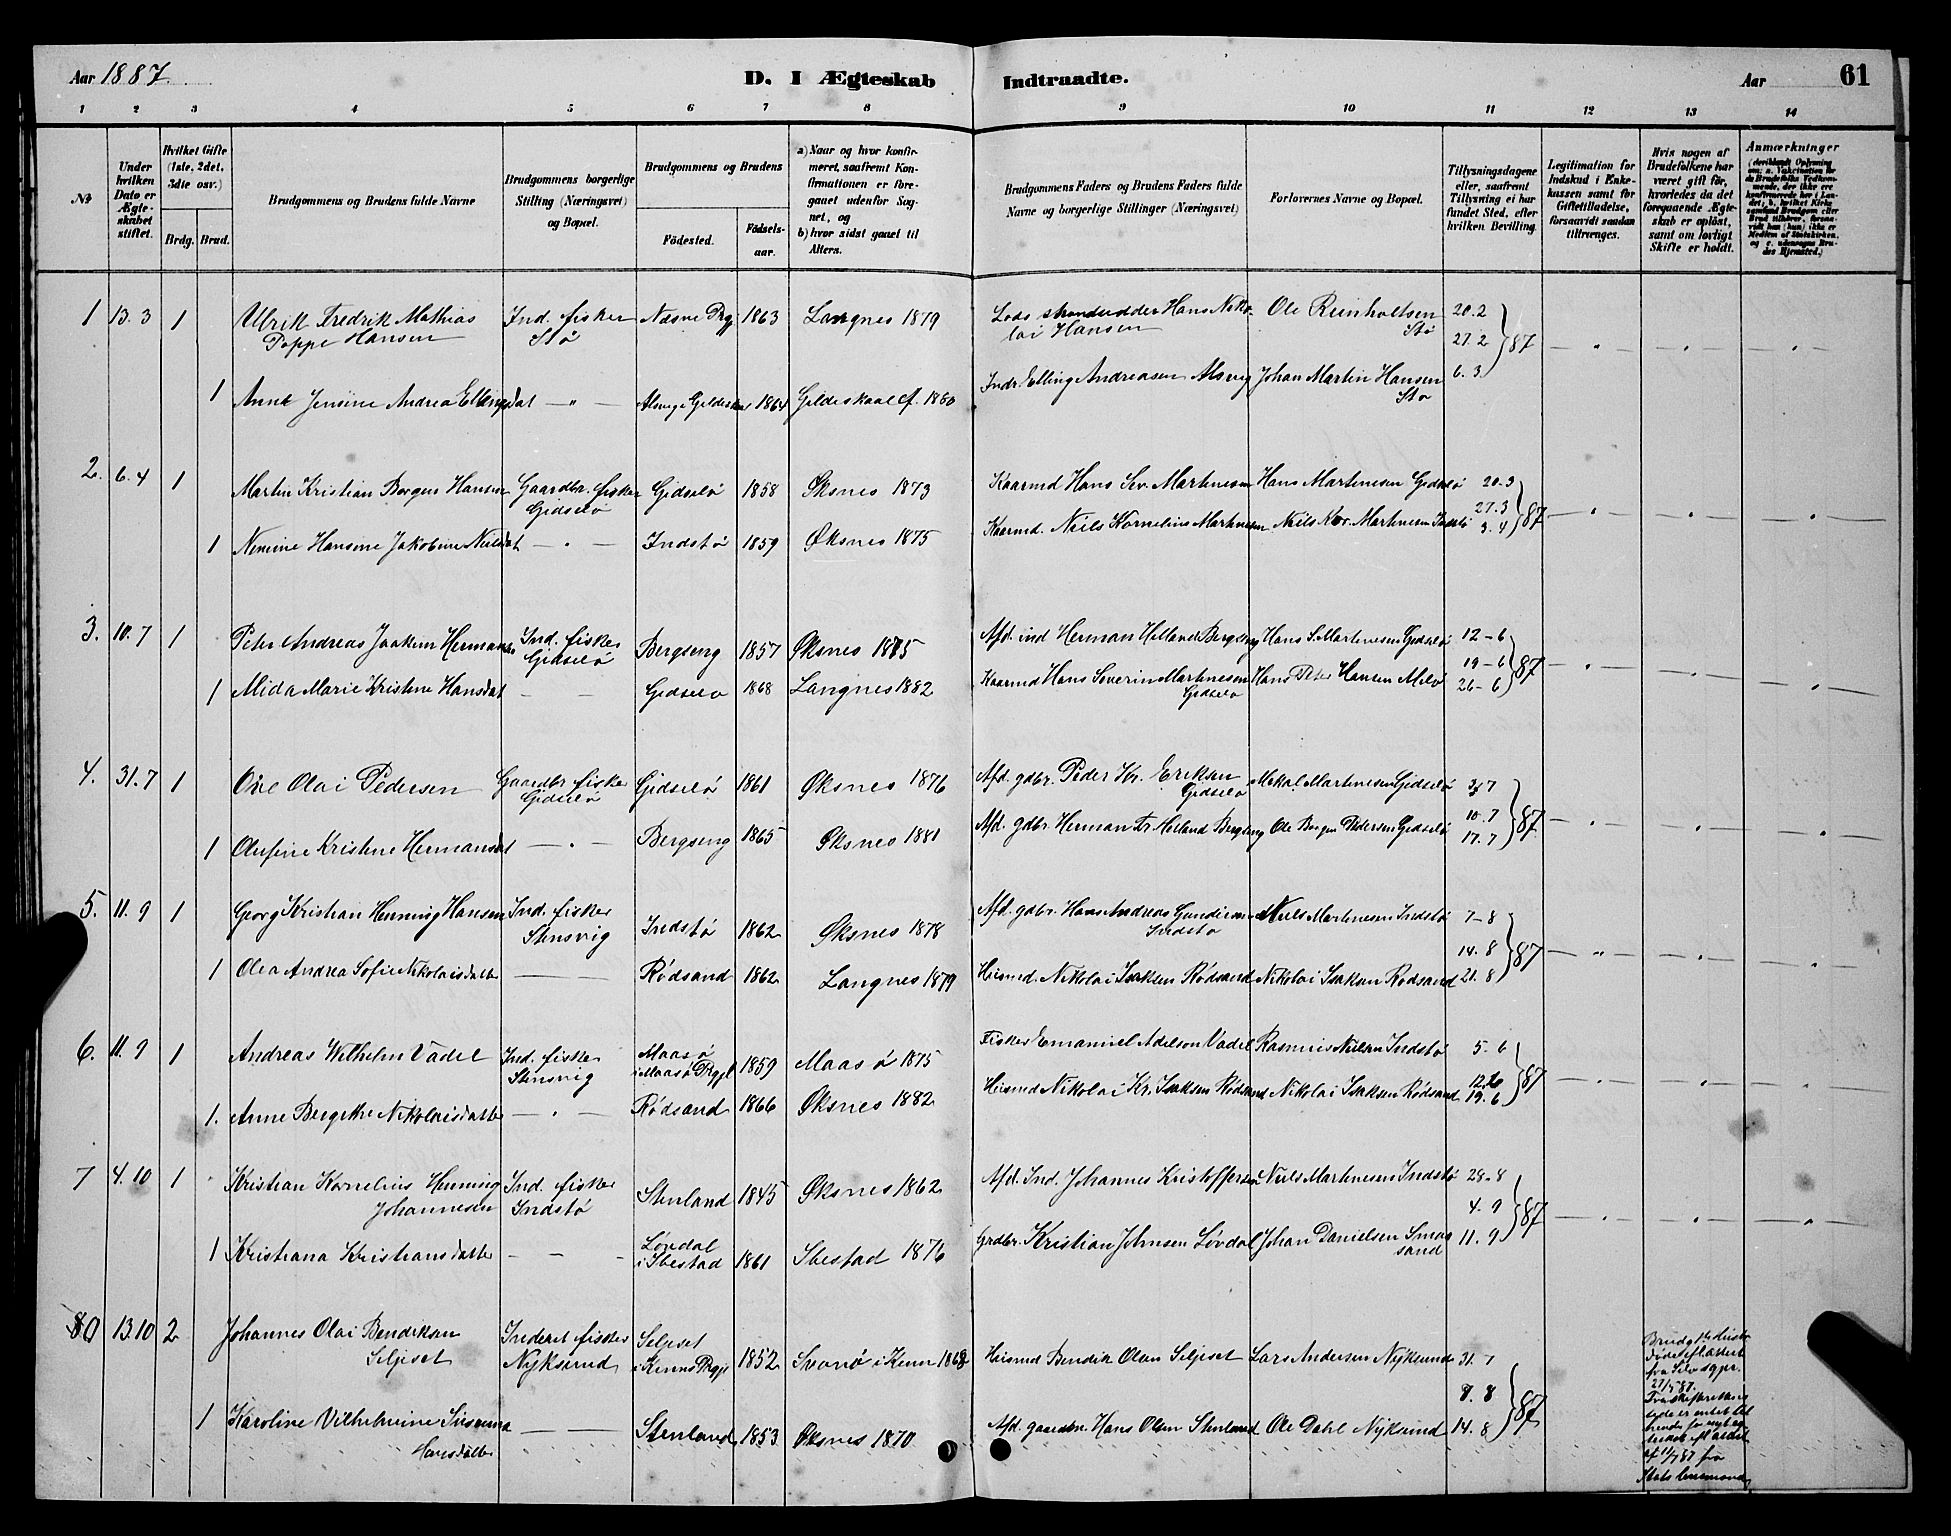 Aar 1887
D. I Ægteskab Indtraadte.
Aar 61
1 2 3 4 5 6 7 8 9 10 11 12 13 14
№
Under hvilken Dato er Ægteskabet stiftet.
Hvilket Gifte (1ste, 2det, 3die osv.)
Brdg. Brud.
Brudgommens og Brudens fulde Navne
Brudgommens borgerlige Stilling (Næringsvei) og Bopæl.
Brudgommens og Brudens
Fødested.
Fødselsaar.
a) Naar og hvor konfirmeret, saafremt Konfirmationen er foregaaet udenfor Sognet, og
b) hvor sidst gaaet til Alters.
Brudgommens Faders og Brudens Faders fulde Navne og borgerlige Stillinger (Næringsvei)
Forlovernes Navne og Bopæl.
Tillysningsdagene eller, saafremt Tillysning ei har fundet Sted, efter hvilken Bevilling.
Legitimation for Indskud i Enkekassen samt for Giftetilladelse, forsaavidt saadan tiltrænges.
Hvis nogen af Brudefolkene har været gift før, hvorledes da det foregaaende Ægteskab er opløst, samt om lovligt Skifte er holdt.
Anmærkninger
1 13.3 1 Ulrik Fredrik Mathias Ind. fisker Næsne Prgj 1863 Langnes 1879 Lods Hans Niko- Ole Reinholtsen 20.2
Poppe Hansen Stø lai Hansen Stø 27.2 87
1 Anne Jensine Andrea Ellingsdat — " — Alsvig i Gildeskaal 1864 Gildeskaal 1880 Indr. Elling Andreasen Alsvig Johan Martin Hansen 6.3
Stø
2. 6.4 1 Martin Kristian Borgen Hansen Gaardbr. fisker Gidselø 1858 Øksnes 1873 Kaarmd Hans Sev. Martinesen Hans Martinesen Gidselø 20.3
Gidselø 27.3 87
1 Hansine Jakobine Nielsdat — " — Indstø 1859 Øksnes 1875 Kaarmd. Niels Kornelius Martinesen Niels Kor. Martinesen Indstø 3.4
3. 10.7 1 Peter Andreas Joakim Hermansen Ind. fisker Bergseng 1857 Øksnes 1875 Afd. ind Herman Helland Bergseng Hans S. Martinesen Gidselø 12-6
Gidselø 19-6 87
1 Mida Marie Kristine Hansdat — — Gidselø 1868 Langnes 1882 Kaarmd Hans Severin Martinesen Hans Peter Hansen 26-6
Gidselø
4. 31.7 1 Ove Olai Pedersen Gaardbr fisker Gidselø 1861 Øksnes 1876 Afd. gdbr. Peder Kr. Eriksen Mekal Martinesen Gidselø 3.7
Gidselø Gidselø 10.7 87
1 Olufine Kristine Hermansdat — " — Bergseng 1865 Øksnes 1881 Afd. gdbr. Herman Fr. Helland Bergseng Ole Borgen Pedersen Gidselø 17.7
5. 11.9 1 Georg Kristian Henning Hansen Ind. fisker Indstø 1862 Øksnes 1878 Afd. gdbr. Hans Andreas Gundersen Niels Martinesen Indstø 7-8
Stensvig Indstø 14.8 87
1 Olea Andrea Sofie Nikolaisdatter — — Rødsand 1862 Langnes 1879 Husmd. Nikolai Isaksen Rødsand Nikolai Isaksen Rødsand 21.8
6. 11.9 1 Andreas Wilhelm Vadel Ind. fisker Maasø i Maasø Prgjl 1859 Maasø 1875 Fisker Emanuel Adelson Vadel Rasmus Nielsen Indstø 5.6
Stensvig 12.6 87
1. Anne Bergithe Nikolaisdatter — " — Rødsand 1866 Øksnes 1882 Husmd Nikolai Kr. Isaksen Rødsand Nikolai Isaksen Rødsand 19.6
7 4.10 1 Kristian Kornelius Henning Ind. fisker Stenland 1845 Øksnes 1862 Afd. Ind. Johannes Kristoffersen Niels Martinesen Indstø 28.8
Johannesen Indstø 4.9 87
1 Kristiana Kristiansdatter — — Løvdal i Ibestad 1861 Ibestad 1876 Grdbr. Kristian Johnsen Løvdal Johan Danielsen Smaasand 11.9
8 13.10 2 Johannes Olai Bendiksen Inderst fisker Seljeset 1852 Svanø i Kinn 1868 Husmd Bendik Olsen Seljeset Lars Andersen Nyksund 31.7
Seljeset Nyksund i Kinn Prgjl 8.8 87
1 Karoline Vilhelmine Susanna — — Stenland 1853 Øksnes 1870 Afd. gaardbr. Hans Olsen Stenland Ole Dahl Nyksund 14.8
Hansdatter